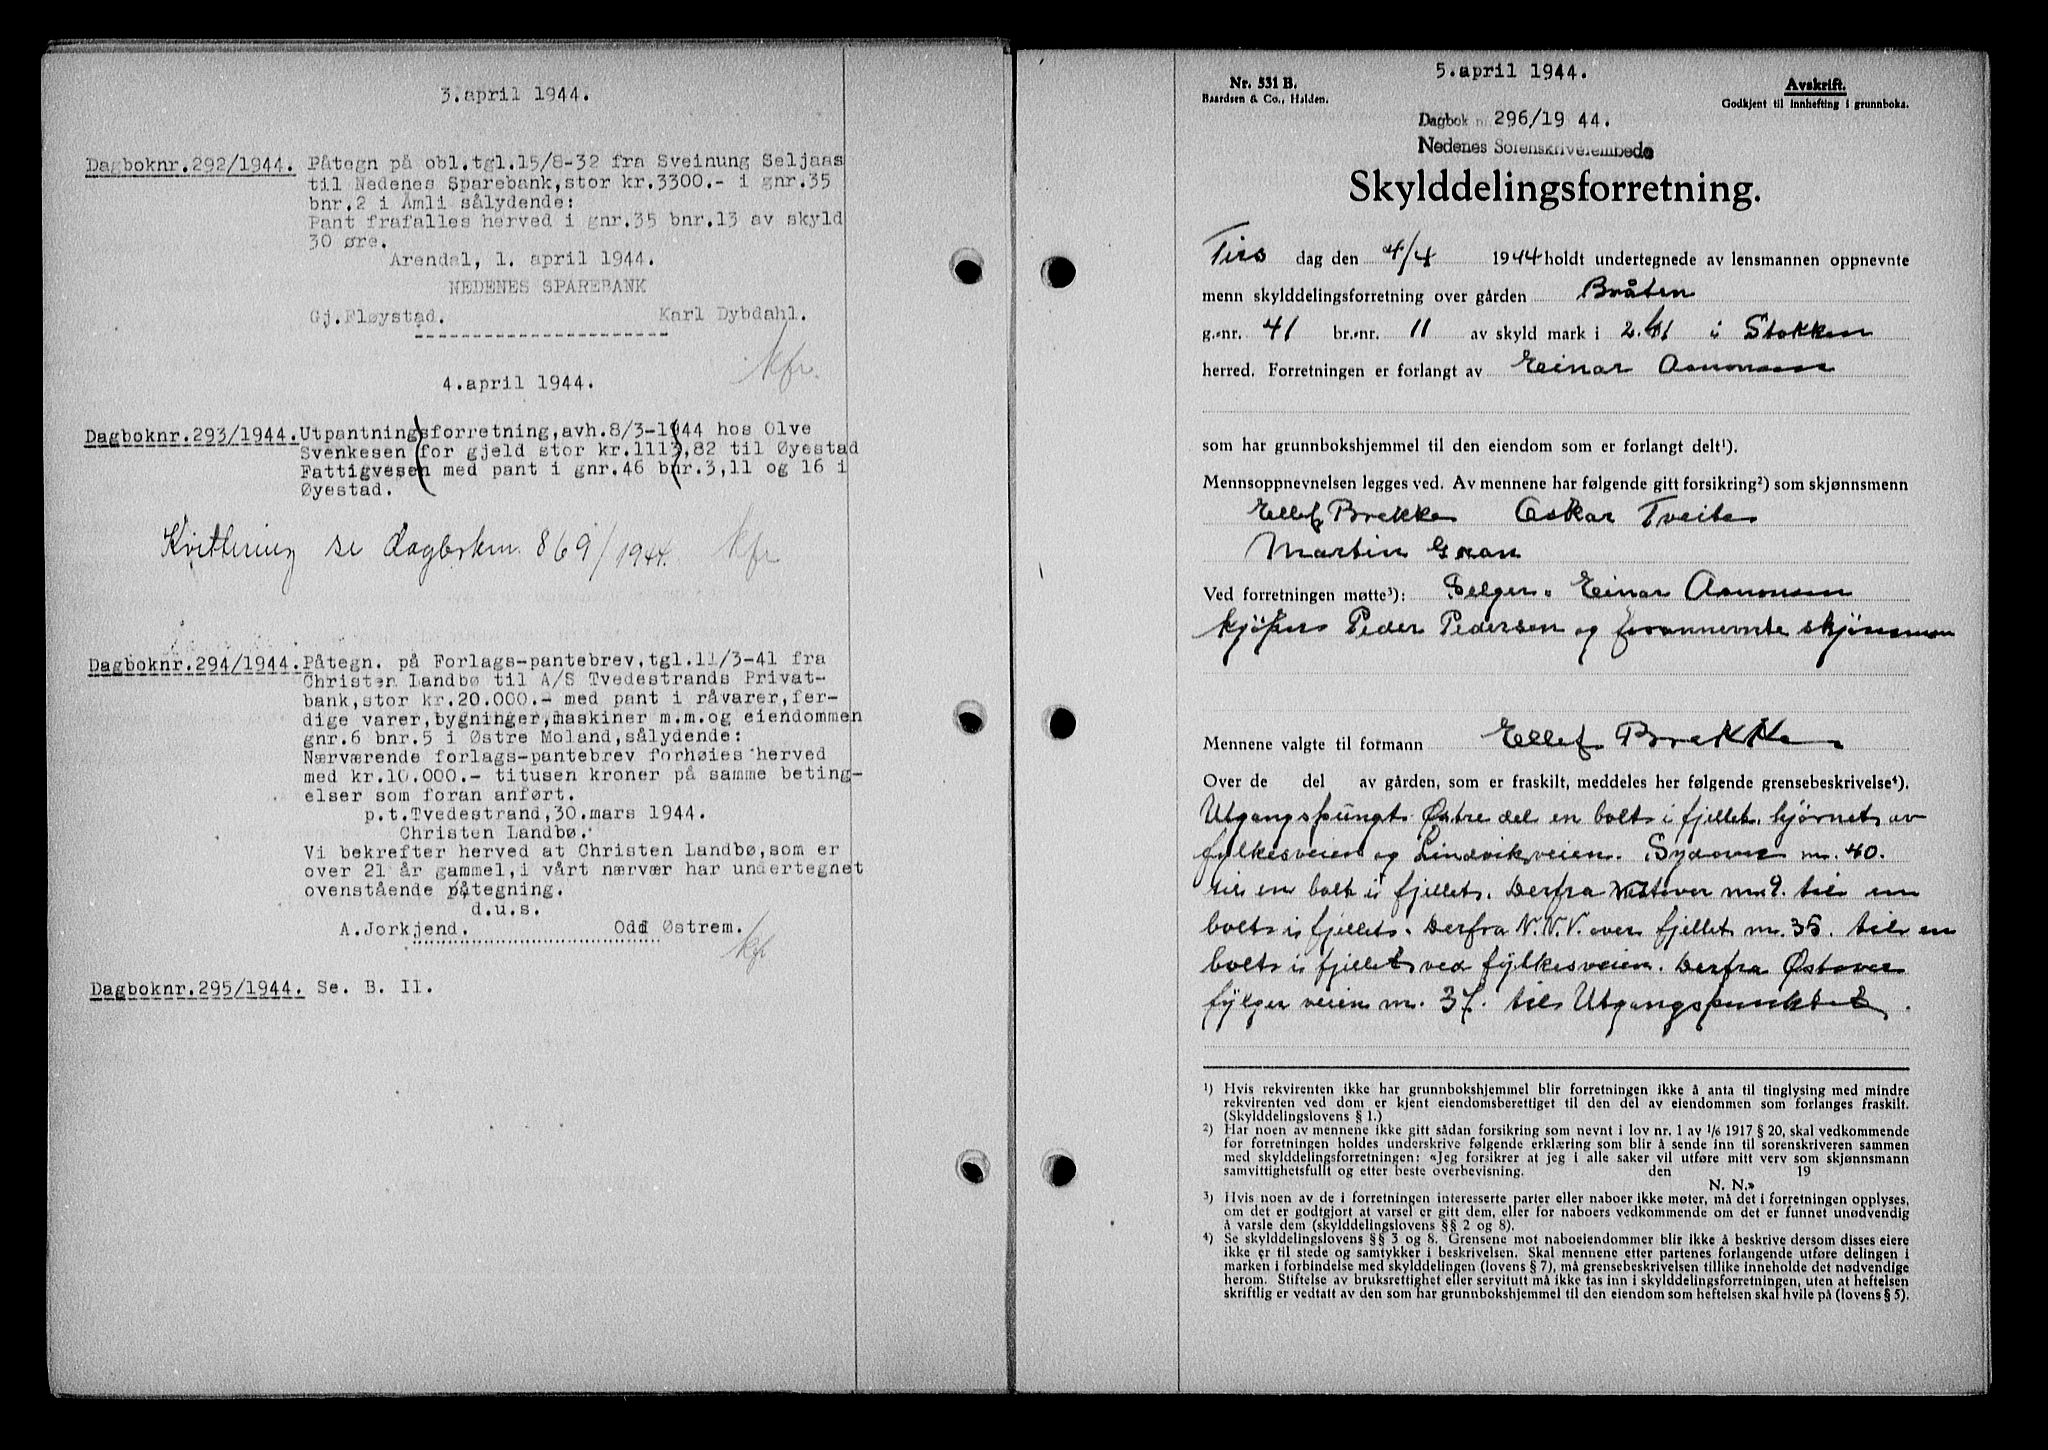 3. april 1944.
Dagboknr. 292/1944. Påtegn på obl.tgl.15/8-32 fra Sveinung Seljaas
til Nedenes Sparebank, stor kr.3300.- i gnr.35
bnr.2 i Åmli sålydende:
Pant frafalles herved i gnr.35 bnr.13 av skyld
30 øre.
Arendal, 1. april 1944.
NEDENES SPAREBANK
Gj.Fløystad. Karl Dybdahl.
kfr.
4. april 1944.
Dagboknr. 293/1944. Utpantningsforretning, avh.8/3-1944 hos Olve
Svenkesen for gjeld stor kr.1113,82 til Øyestad
Fattigvesen med pant i gnr.46 bnr.3,11 og 16 i
Øyestad.
Kvittering se dagboknr. 869/1944. kfr
Dagboknr. 294/1944. Påtegn. på Forlags-pantebrev, tgl.11/3-41 fra
Christen Landbø til A/S Tvedestrands Privat-
bank, stor kr.20.000.- med pant i råvarer, fer-
dige varer, bygninger, maskiner m.m. og eiendommen
gnr.6 bnr.5 i Østre Moland, sålydende:
Nærværende forlags-pantebrev forhøies herved
med kr.10.000.- titusen kroner på samme beting-
elser som foran anført.
p.t.Tvedestrand, 30.mars 1944.
Christen Landbø.
Vi bekrefter herved at Christen Landbø, som er
over 21 år gammel, i vårt nærvær har undertegnet
ovenstående påtegning.
d.u.s.
A.Jorkjend. Odd Østrem.
kfr
Dagboknr. 295/1944. Se. B. II.
5. april 1944.
Nr. 531 B.
Baardsen & Co., Halden.
Avskrift.
Godkjent til innhefting i grunnboka.
Dagbok nr. 296/19 44.
Nedenes Sorenskriverembede
Skylddelingsforretning.
Tirs dag den 4/4 1944 holdt undertegnede av lensmannen oppnevnte
menn skylddelingsforretning over gården Bråten
g.-nr. 41 br.-nr. 11 av skyld mark i 2.41 i Stokken
herred. Forretningen er forlangt av Einar Asmonsen
som har grunnbokshjemmel til den eiendom som er forlangt delt¹).
Mennsoppnevnelsen legges ved. Av mennene har følgende gitt forsikring²) som skjønnsmenn
Ellef Brekke Oskar Tveite
Martin Gran
Ved forretningen møtte³): Selger. Einar Asmonsen
kjøper Peder Pedersen og forannevnte skjønsmen
Mennene valgte til formann Ellef Brekke
Over de del av gården, som er fraskilt, meddeles her følgende grensebeskrivelse⁴).
Utgangspungt Østre del en bolt i fjellet. hjørnet av
fylkesveien og Lindvikveien. Sydover m. 40.
til en bolt i fjellet. Derfra Vestover m. 9. til en
bolt i fjellet. Derfra N.N.V. over fjellet m. 35. til en
bolt i fjellet ved fylkesveien. Derfra Østover
fylger veien m. 37. til Utgangspunktet.
¹) Hvis rekvirenten ikke har grunnbokshjemmel blir forretningen ikke å anta til tinglysing med mindre
rekvirenten ved dom er kjent eiendomsberettiget til den del av eiendommen som forlanges fraskilt.
(Skylddelingslovens § 1.)
²) Har noen av mennene ikke gitt sådan forsikring som nevnt i lov nr. 1 av 1/6 1917 § 20, skal vedkommende
før forretningen holdes underskrive følgende erklæring som blir å sende inn til sorenskriveren sammen
med skylddelingsforretningen: «Jeg forsikrer at jeg i alle saker vil utføre mitt verv som skjønnsmann
samvittighetsfullt og etter beste overbevisning. den 19
N. N.»
³) Hvis noen av de i forretningen interesserte parter eller naboer ikke møter, må det i forretningen opplyses,
om det er godtgjort at varsel er gitt dem, eller for naboers vedkommende om det er funnet unødvendig
å varsle dem (skylddelingslovens §§ 2 og 8).
⁴) Se skylddelingslovens §§ 3 og 8. Grensene mot naboeiendommer blir ikke å beskrive dersom disses eiere
ikke er til stede og samtykker i beskrivelsen. Skal mennene etter partenes forlangende utføre delingen i
marken i forbindelse med skylddelingen (lovens § 7), må grensebeskrivelsen tillike inneholde det nødvendige
herom. Stiftelse av bruksrettighet eller servitutt må ikke tas inn i skylddelingsforretningen, uten at heftelsen
skriftlig er vedtatt av den som har grunnbokshjemmel til den eiendom som heftelsen skal hvile på (lovens § 5).